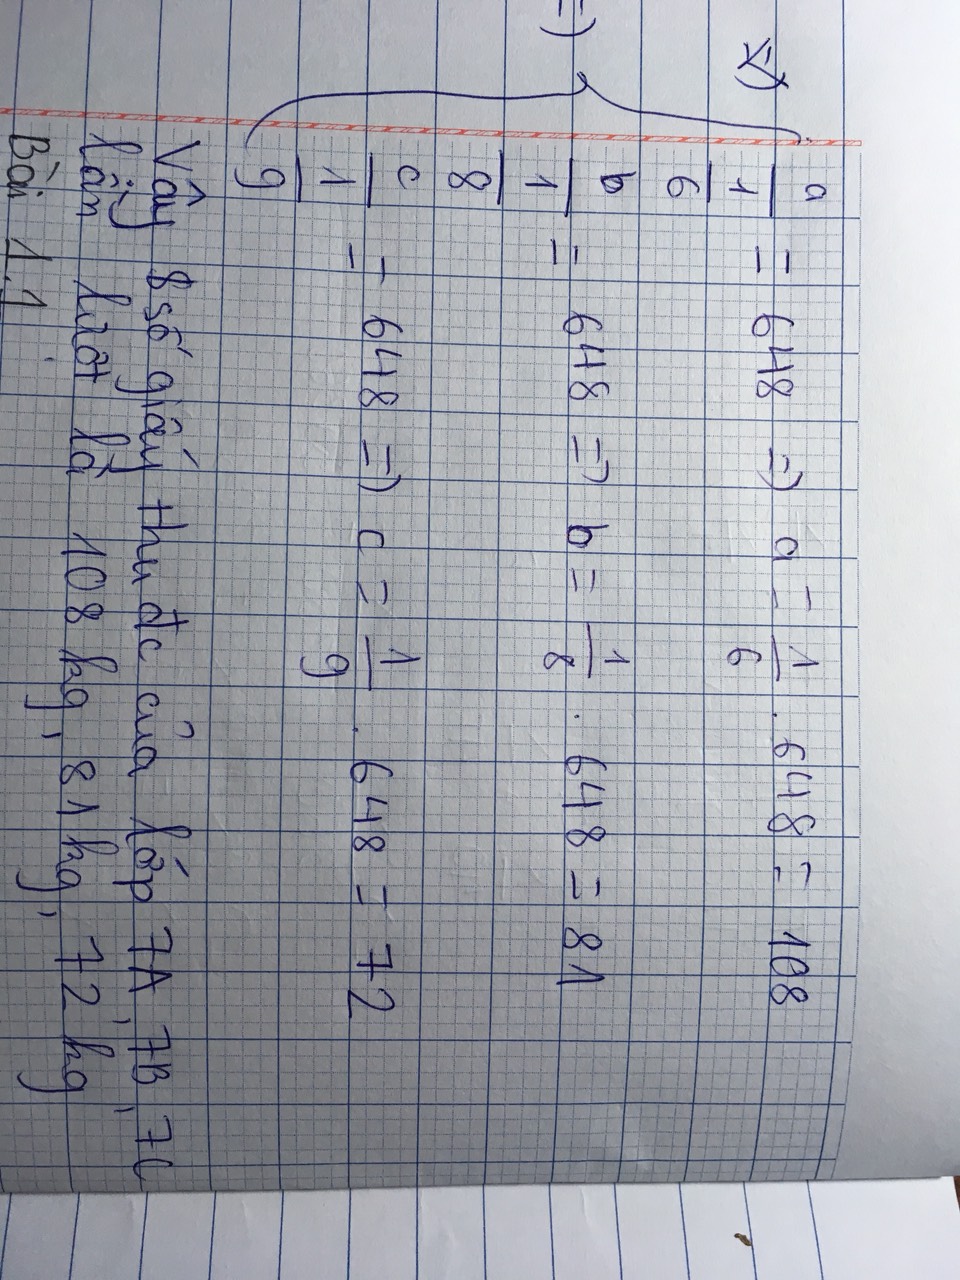 => a/(1/6) = 648 => a = 1/6 . 648 = 108
=> b/(1/8) = 648 => b = 1/8 . 648 = 81
c/(1/9) = 648 => c = 1/9 . 648 = 72
Vậy số giấy thu đc của lớp 7A, 7B, 7C
lần lượt là 108 kg, 81 kg, 72 kg
Bài 1.1